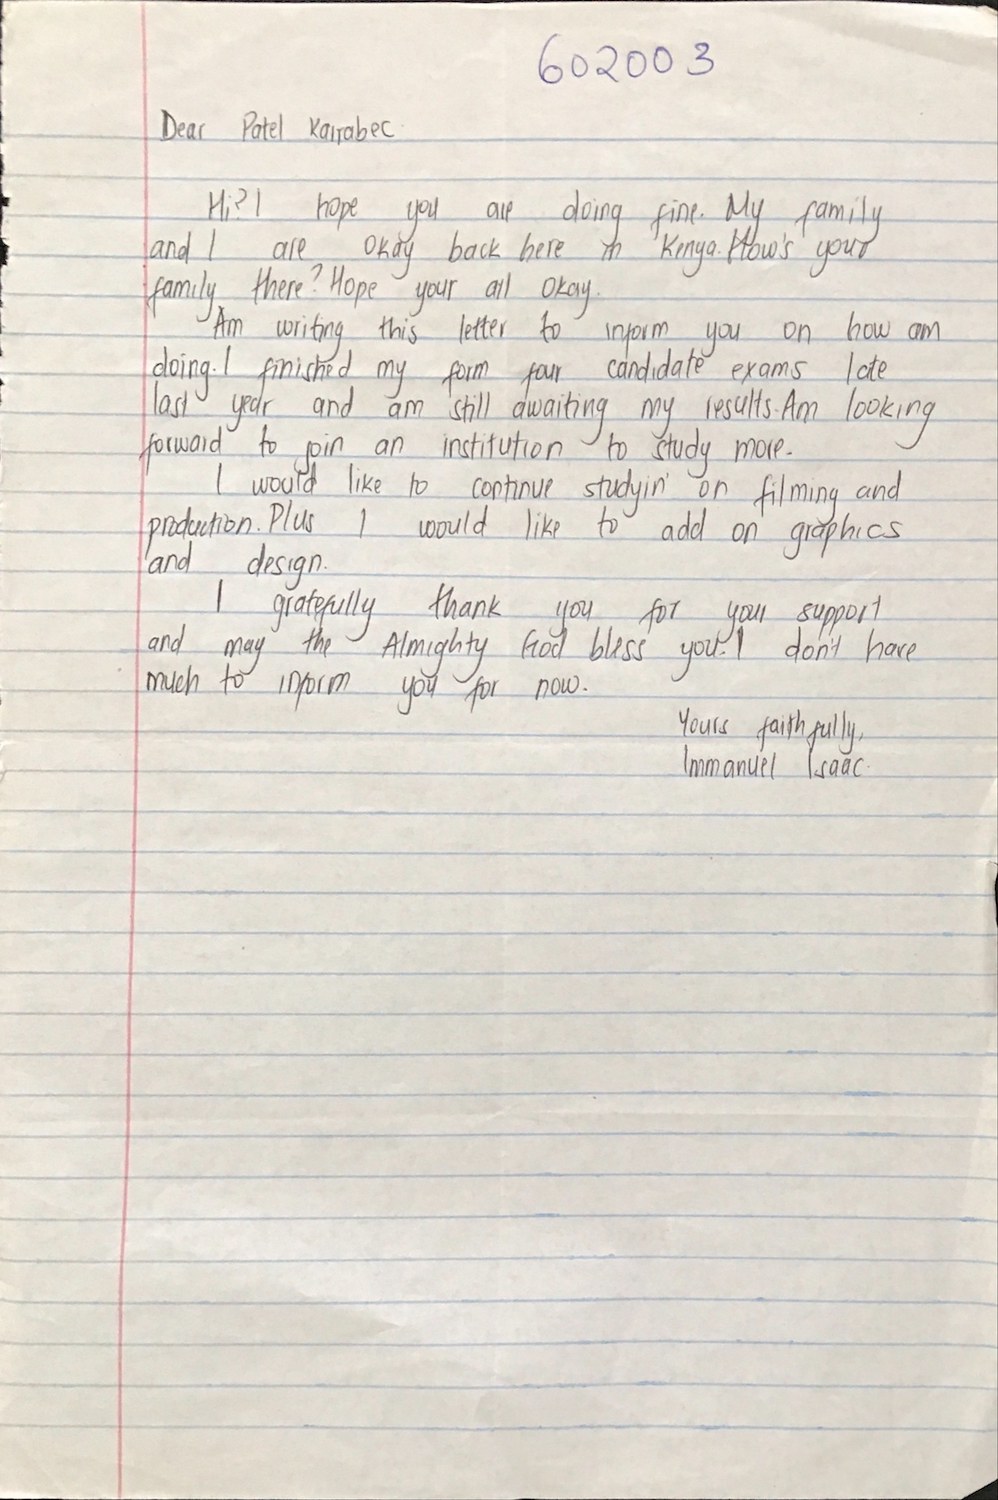 602003
Dear Patel Kairabec
Hi? I hope you are doing fine. My family
and I are okay back here in Kenya. How's your
family there? Hope your all okay.
Am writing this letter to inform you on how am
doing. I finished my form four candidate exams late
last year and am still awaiting my results. Am looking
forward to join an institution to study more.
I would like to continue studyin' on filming and
production. Plus I would like to add on graphics
and design.
I gratefully thank you for your support
and may the Almighty God bless you. I don't have
much to inform you for now.
Yours faithfully,
Immanuel Isaac.